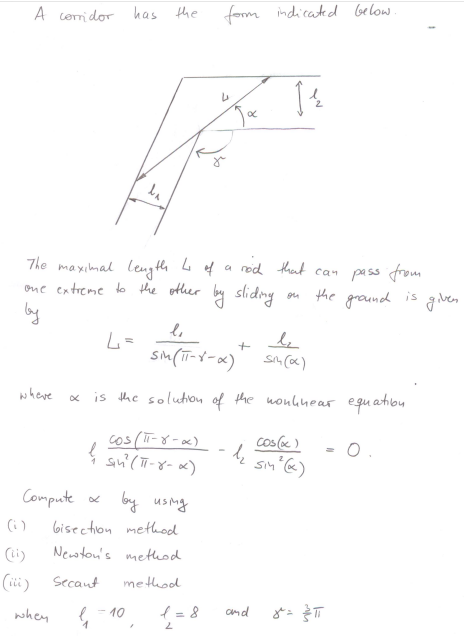 A corridor has the form indicated below.
L
α
l₂
γ
l₁
The maximal length L of a rod that can pass from
one extreme to the other by sliding on the ground is given
by
L = l₁/sin(π-γ-α) + l₂/sin(α)
where α is the solution of the nonlinear equation
l₁ cos(π-γ-α)/sin²(π-γ-α) - l₂ cos(α)/sin²(α) = 0.
Compute α by using
(i) bisection method
(ii) Newton's method
(iii) Secant method
when l₁ = 10, l₂ = 8 and γ = 3/5 π